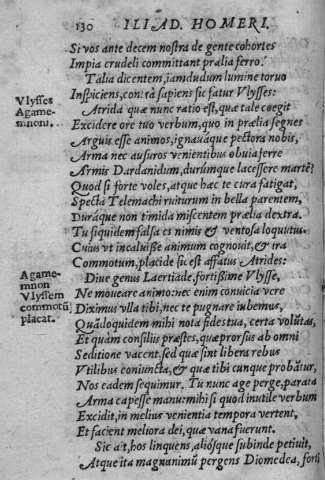 130 ILIAD. HOMERI.
Si vos ante decem nostra de gente cohortes
Impia crudeli committant prælia ferro.
Talia dicentem, iamdudum lumine toruo
Inspiciens, contrà sapiens sic fatur Vlysses:
Vlysses
Agame-
mnoni.
Atrida quæ nunc ratio est, quæ tale coegit
Excidere ore tuo verbum, quo in prælia segnes
Arguis esse animos, ignauáque pectora nobis,
Arma nec ausuros venientibus obuia ferre
Armis Dardanidum, durúmque lacessere martē?
Quod si forte voles, atque hæc te cura fatigat,
Specta Telemachi ruiturum in bella parentem,
Duráque non timida miscentem prælia dextra.
Tu siquidem falsa es nimis & ventosa loquutus.
Cuius vt incaluisse animum cognouit, & ira
Commotum, placide sic est affatus Atrides:
Agame-
mnon
Vlyssem
commotū
placat.
Diue genus Laertiade, fortissime Vlysse,
Ne moueare animo: nec enim conuicia vere
Diximus vlla tibi, nec te pugnare iubemus,
Quādoquidem mihi nota fides tua, certa volūtas,
Et quàm consiliis præstes, quæ prorsus ab omni
Seditione vacent, sed quæ sint libera rebus
Vtilibus coniuncta, & quæ tibi cunque probātur,
Nos eadem sequimur. Tu nunc age perge, parata
Arma capesse manu: mihi si quod inutile verbum
Excidit, in melius venientia tempora vertent,
Et facient meliora dei, quæ vana fuerunt.
Sic ait, hos linquens, aliósque subinde petiuit,
Atque ita magnanimū pergens Diomedea, forti